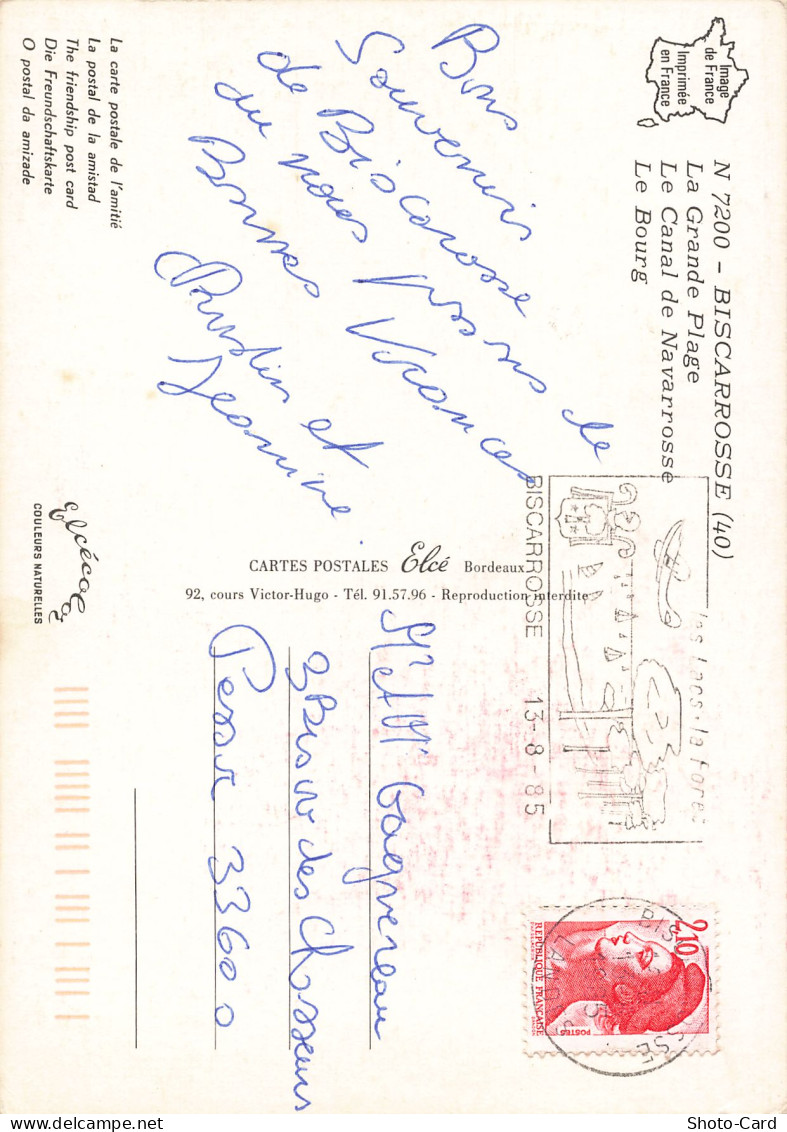 Image
de France
Imprimée
en France
N 7200 - BISCARROSSE (40)
La Grande Plage
Le Canal de Navarrosse
Le Bourg
Bons
Souvenirs
de Biscarosse
où nous passons de
Bonnes Vacances
et
Jeanine.
La carte postale de l'amitié
La postal de la amistad
The friendship post card
Die Freundschaftskarte
O postal da amizade
Elcécolor
COULEURS NATURELLES
CARTES POSTALES Elcé Bordeaux
92, cours Victor-Hugo - Tél. 91.57.96 - Reproduction interdite
BISCARROSSE 13-8-85
les lacs. la foret
2,10
REPUBLIQUE FRANÇAISE
POSTES
LANDES
Mr et Mme Gagnereau
3 Bis des Chasseurs
Pessac 33600
Shoto-Card